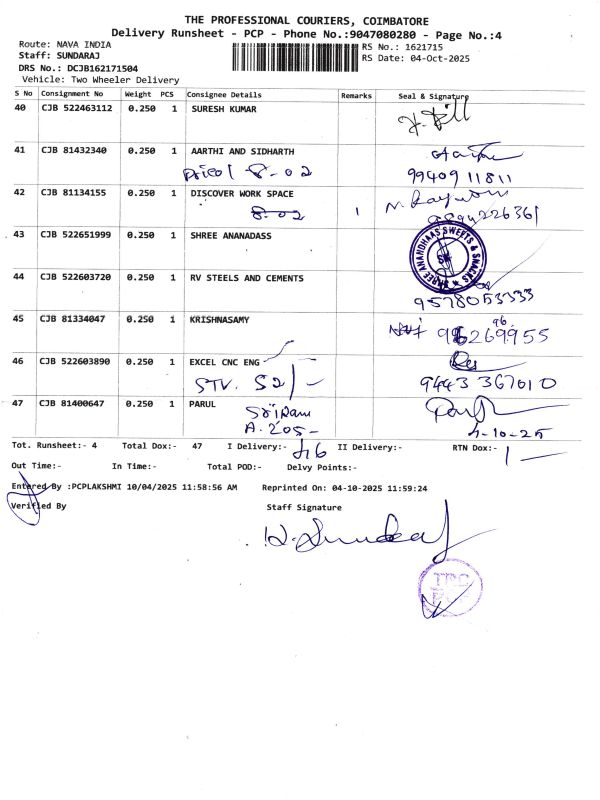 THE PROFESSIONAL COURIERS, COIMBATORE
Delivery Runsheet - PCP - Phone No.:9047080280 - Page No.:4
Route: NAVA INDIA
RS No.: 1621715
Staff: SUNDARAJ
RS Date: 04-Oct-2025
DRS No.: DCJB162171504
Vehicle: Two Wheeler Delivery
S No Consignment No Weight PCS Consignee Details Remarks Seal & Signature
40 CJB 522463112 0.250 1 SURESH KUMAR
41 CJB 81432340 0.250 1 AARTHI AND SIDHARTH
8-02 99409 11811
42 CJB 81134155 0.250 1 DISCOVER WORK SPACE
8-02 1
43 CJB 522651999 0.250 1 SHREE ANANADASS
SHREE ANANDHAAS SWEETS & SNACKS
44 CJB 522603720 0.250 1 RV STEELS AND CEMENTS
9578053333
45 CJB 81334047 0.250 1 KRISHNASAMY
46 CJB 522603890 0.250 1 EXCEL CNC ENG
STV. 52/- 9443 367010
47 CJB 81400647 0.250 1 PARUL
Sriram
A. 205-
4-10-25
Tot. Runsheet:- 4 Total Dox:- 47 I Delivery:- 46 II Delivery:- RTN Dox:- 1
Out Time:- In Time:- Total POD:- Delvy Points:-
Entered By :PCPLAKSHMI 10/04/2025 11:58:56 AM Reprinted On: 04-10-2025 11:59:24
Verified By Staff Signature